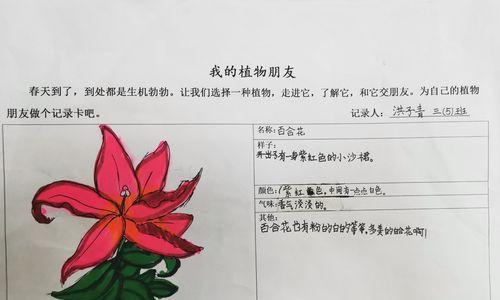 我的植物朋友
春天到了，到处都是生机勃勃。让我们选择一种植物，走进它，了解它，和它交朋友。为自己的植物
朋友做个记录卡吧。 记录人：洪子青 三(5)班
名称：百合花
样子：
有一身紫红色的小沙裙。
颜色：紫红色，中间有一点点白色。
气味：香气淡淡的。
其他：
百合花也有粉的白的等等，多美的百合花啊！